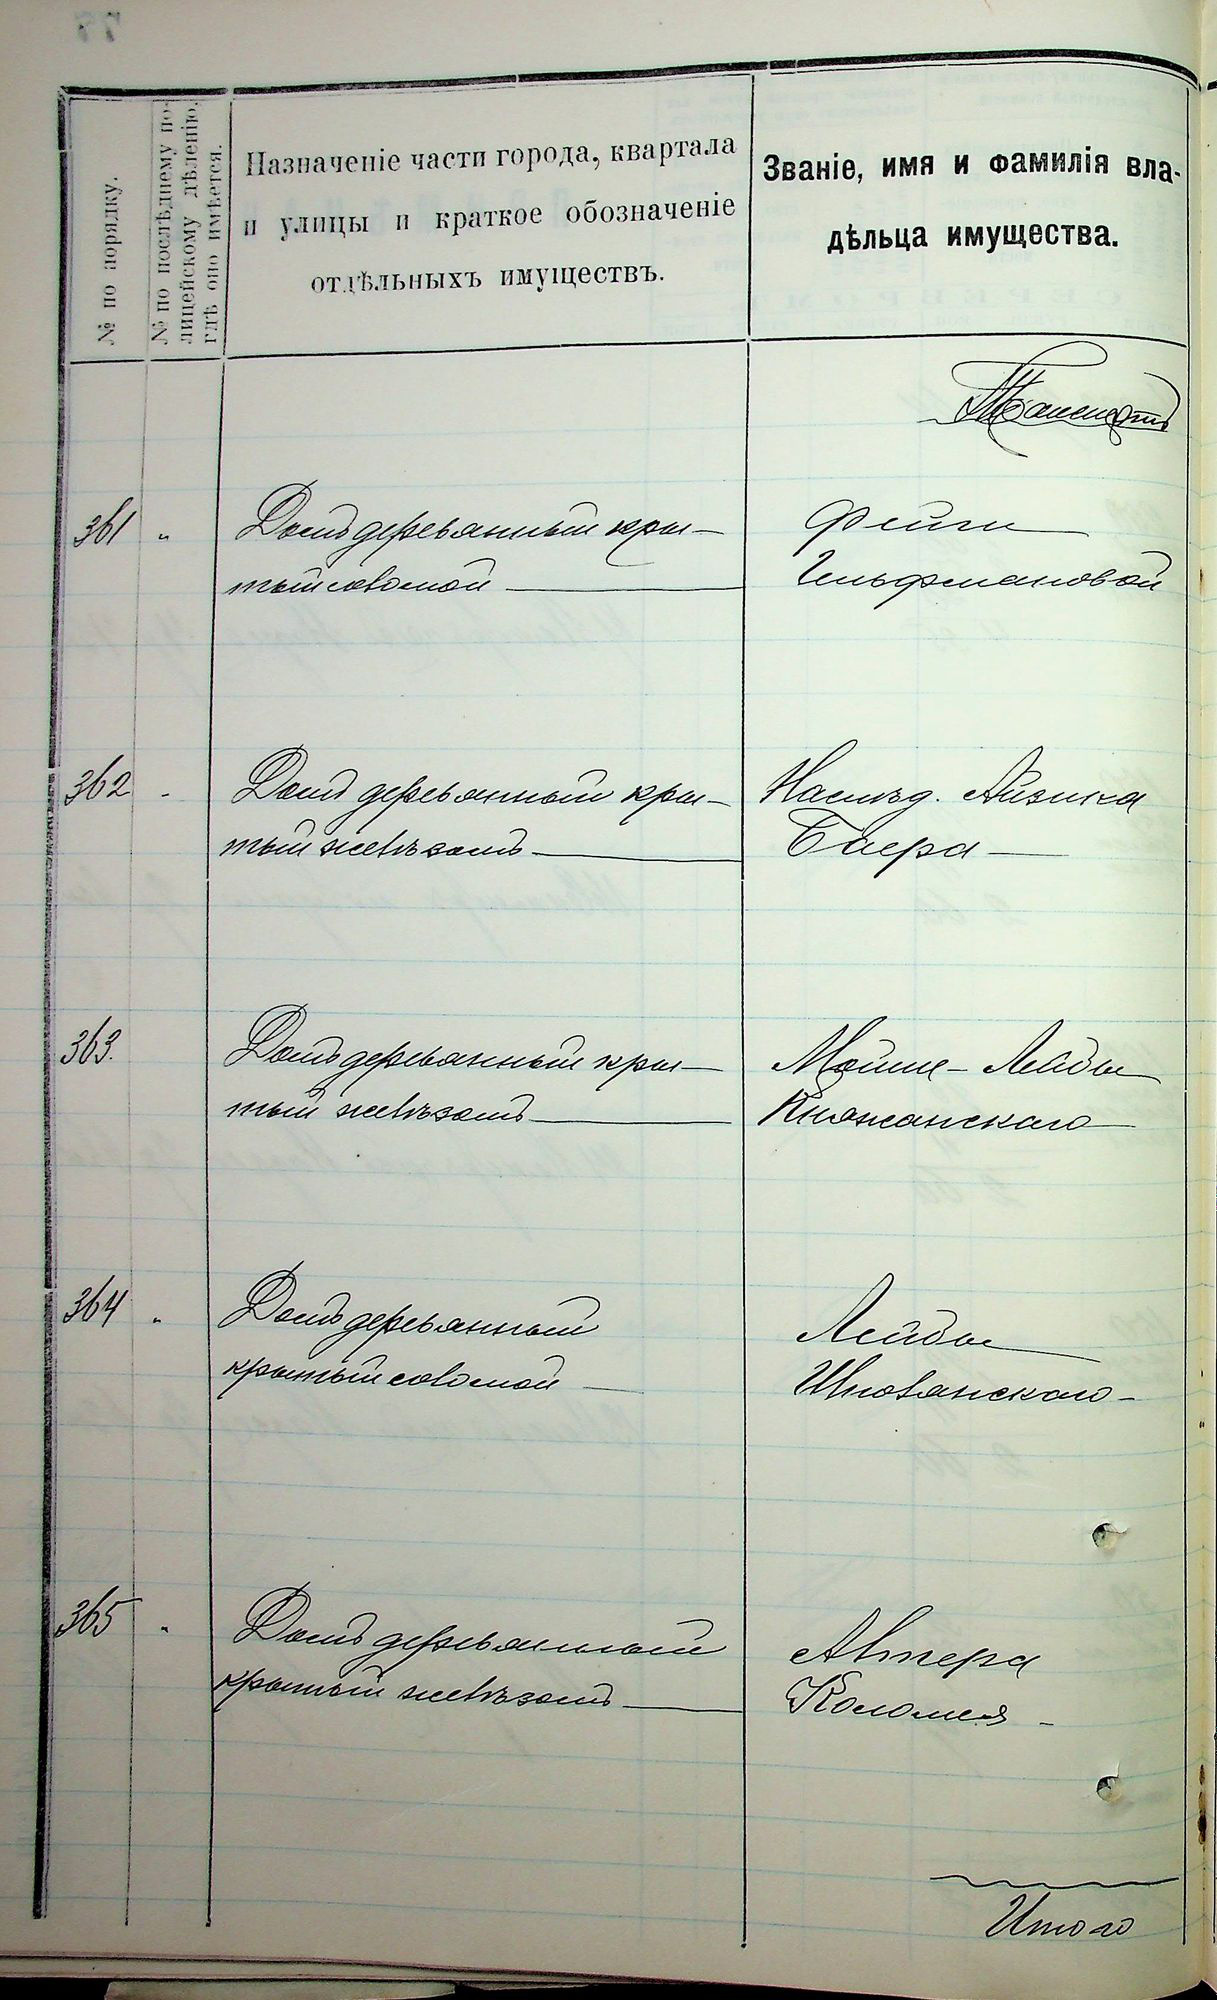 № по порядку.
№ по послѣднему по-
лицейскому дѣленію,
гдѣ оно имѣется.
Назначеніе части города, квартала
и улицы и краткое обозначеніе
отдѣльныхъ имуществъ.
Званіе, имя и фамилія вла-
дѣльца имущества.
Транспортъ
361 " Домъ деревянный кры-
тый соломой
Фейги
Гельфмановой
362 " Домъ деревянный кры-
тый желѣзомъ
Наслѣд. Айзика
Баера
363. Домъ деревянный кры-
тый желѣзомъ
Мойше-Лейбы
Княжанскаго
364 " Домъ деревянный
крытый соломой
Лейбы
365 " Домъ деревянный
крытый желѣзомъ
Алтера
Коломея
Итого